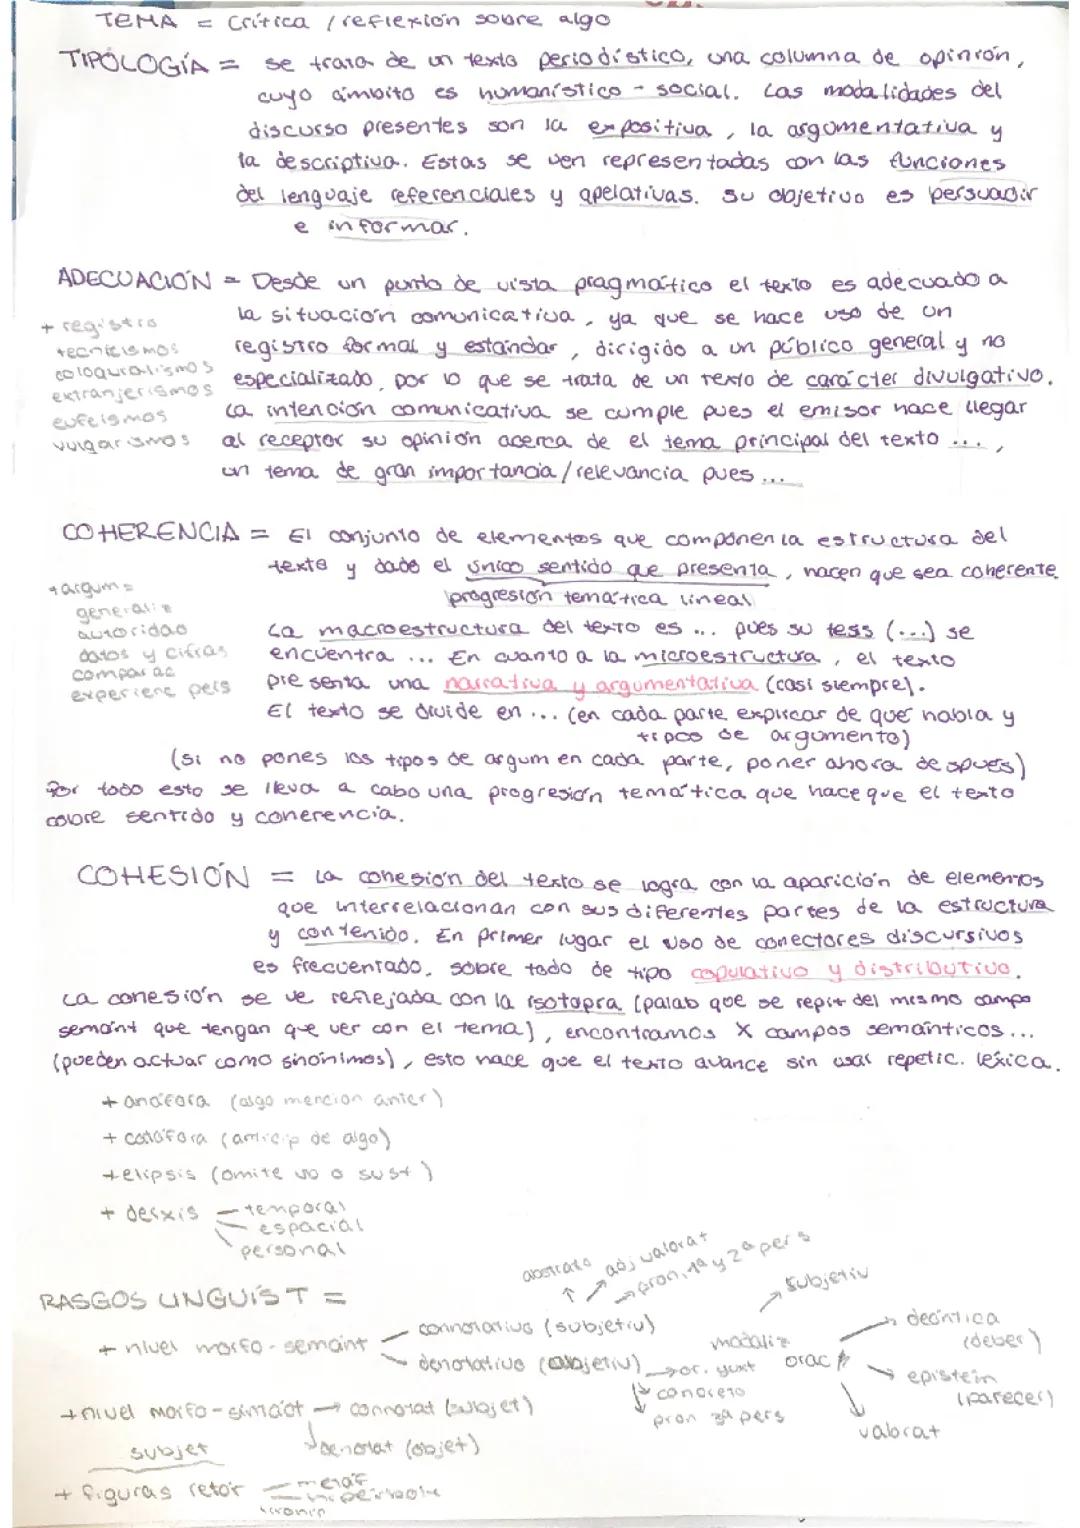 TEMA = Crítica / reflexión sobre algo
TIPOLOGÍA = se trata de un texto periodístico, una columna de opinión,
cuyo ámbito es humanístico - social. Las modalidades del
discurso presentes son la expositiva, la argumentativa y
la descriptiva. Estas se ven representadas con las funciones
del lenguaje referenciales y apelativas. Su objetivo es persuadir
e informar.
ADECUACIÓN = Desde un punto de vista pragmático el texto es adecuado a
la situación comunicativa, ya que se hace uso de un
registro formal y estándar, dirigido a un público general y no
especializado, por lo que se trata de un texto de carácter divulgativo.
La intención comunicativa se cumple pues el emisor hace llegar
al receptor su opinión acerca de el tema principal del texto ...,
un tema de gran importancia/relevancia pues ...
+ registro
tecnicismos
coloquialismos
extranjerismos
eufeismos
vulgarismos
COHERENCIA = El conjunto de elementos que componen la estructura del
texto y dado el único sentido que presenta, hacen que sea coherente.
progresión temática lineal
La macroestructura del texto es ... pues su tess (...) se
encuentra ... En cuanto a la microestructura, el texto
presenta una narrativa y argumentativa (casi siempre).
El texto se divide en ... (en cada parte explicar de que habla y
tipos de argumento)
+ argum =
generaliz
autoridad
datos y cifras
comparac
experienc pers
(si no pones los tipos de argum en cada parte, poner ahora después)
Por todo esto se lleva a cabo una progresión temática que hace que el texto
cobre sentido y coherencia.
COHESIÓN = La cohesión del texto se logra con la aparición de elementos
que interrelacionan con sus diferentes partes de la estructura
y contenido. En primer lugar el uso de conectores discursivos
es frecuentado, sobre todo de tipo copulativo y distributivo.
La cohesión se ve reflejada con la isotopía (palab que se repit del mismo campo
semánt que tengan que ver con el tema), encontramos X campos semánticos...
(pueden actuar como sinónimos), esto hace que el texto avance sin usar repetic. léxica.
+ anáfora (algo mencion anter)
+ catáfora (anticip de algo)
+ elipsis (omite vb o sust)
+ deixis temporal
espacial
personal
RASGOS LINGUÍST =
+ nivel morfo-semánt connotativo (subjetiv)
denotativo (objetiv)
abstrato adj valorat pron. 1ª y 2ª pers
or. yuxt
concreto
pron 3ª pers
modaliz orac subjetiv
deóntica (deber)
epistém (parecer)
valorat
+ nivel morfo-sintáct connotat (subjet)
denotat (objet)
subjet
+ figuras retór metáf
hipérbole
ironía